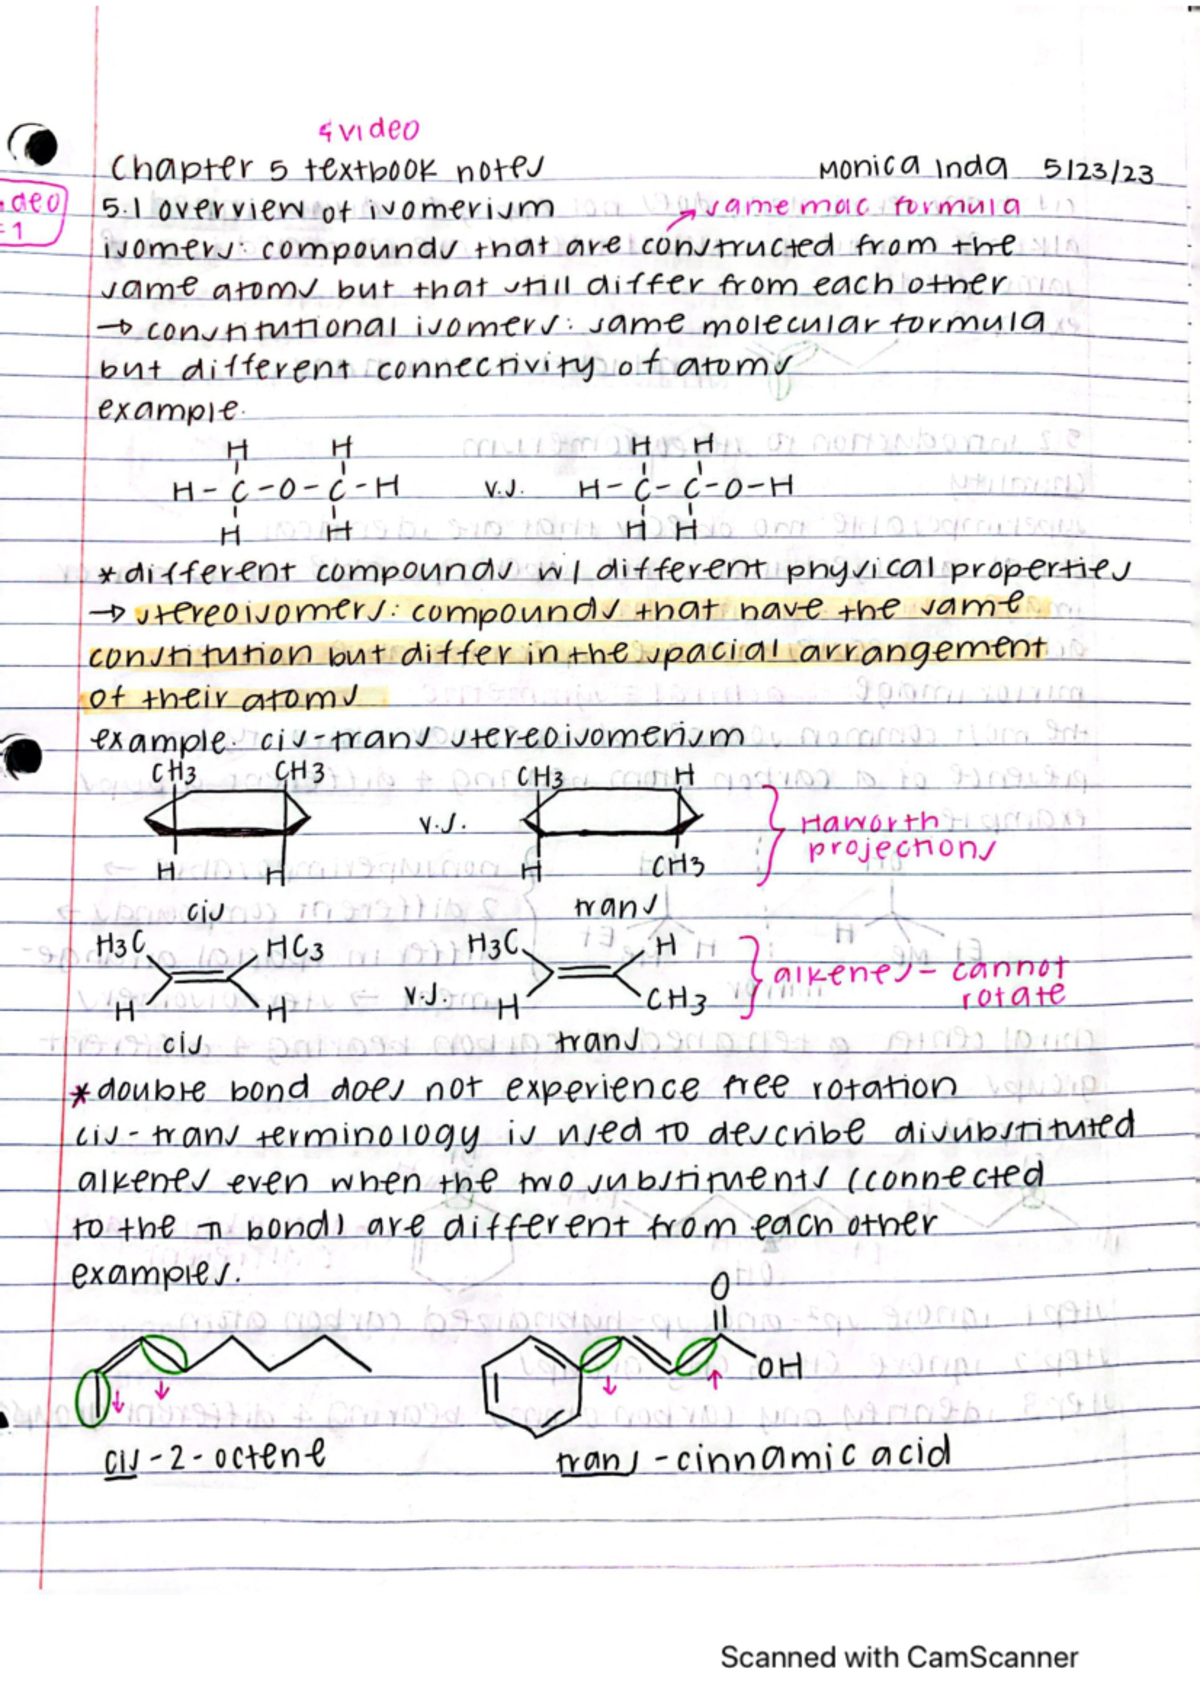 & video
Chapter 5 textbook notes Monica Inda 5/23/23
deo 5.1 overview of isomerism → same mac formula
1 isomers: compounds that are constructed from the
same atoms but that still differ from each other
→ constitutional isomers: same molecular formula
but different connectivity of atoms
example.
H H H H
H-C-O-C-H v.s. H-C-C-O-H
H H H H
*different compounds w/ different physical properties
→ stereoisomers: compounds that have the same
constitution but differ in the spacial arrangement
of their atoms
example. cis-trans stereoisomerism
CH3 CH3 CH3 H
v.s. Haworth
projections
H H H CH3
cis trans
H3C HC3 H3C H
alkenes - cannot
rotate
H H v.s. H CH3
cis trans
*double bond does not experience free rotation
cis-trans terminology is used to describe disubstituted
alkenes even when the two substituents (connected
to the π bond) are different from each other
examples.
O
OH
cis-2-octene trans-cinnamic acid
Scanned with CamScanner